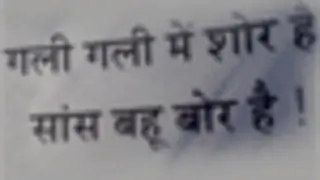 गली गली में शोर है
सांस बहू बोर है !